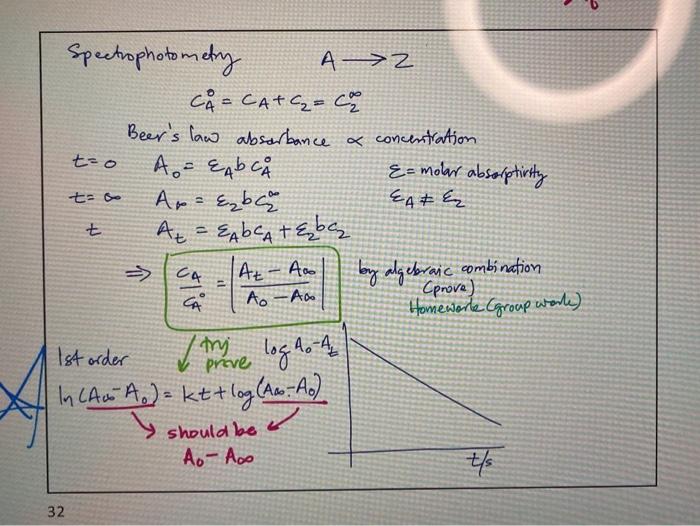 Spectrophotometry A → Z
C_A^0 = C_A + C_Z = C_Z^∞
Beer's law absorbance ∝ concentration
t=0 A₀ = ε_A b C_A^0 ε = molar absorptivity
t=∞ A_∞ = ε_Z b C_Z^∞ ε_A ≠ ε_Z
t A_t = ε_A b C_A + ε_Z b C_Z
⇒ C_A / C_A^0 = |A_t − A_∞ / A₀ − A_∞| by algebraic combination
(prove)
Homework (group work)
try
prove
log A₀−A_t
1st order
ln (A_∞−A₀) = kt + log (A_∞−A₀)
should be
A₀ − A_∞
t/s
32